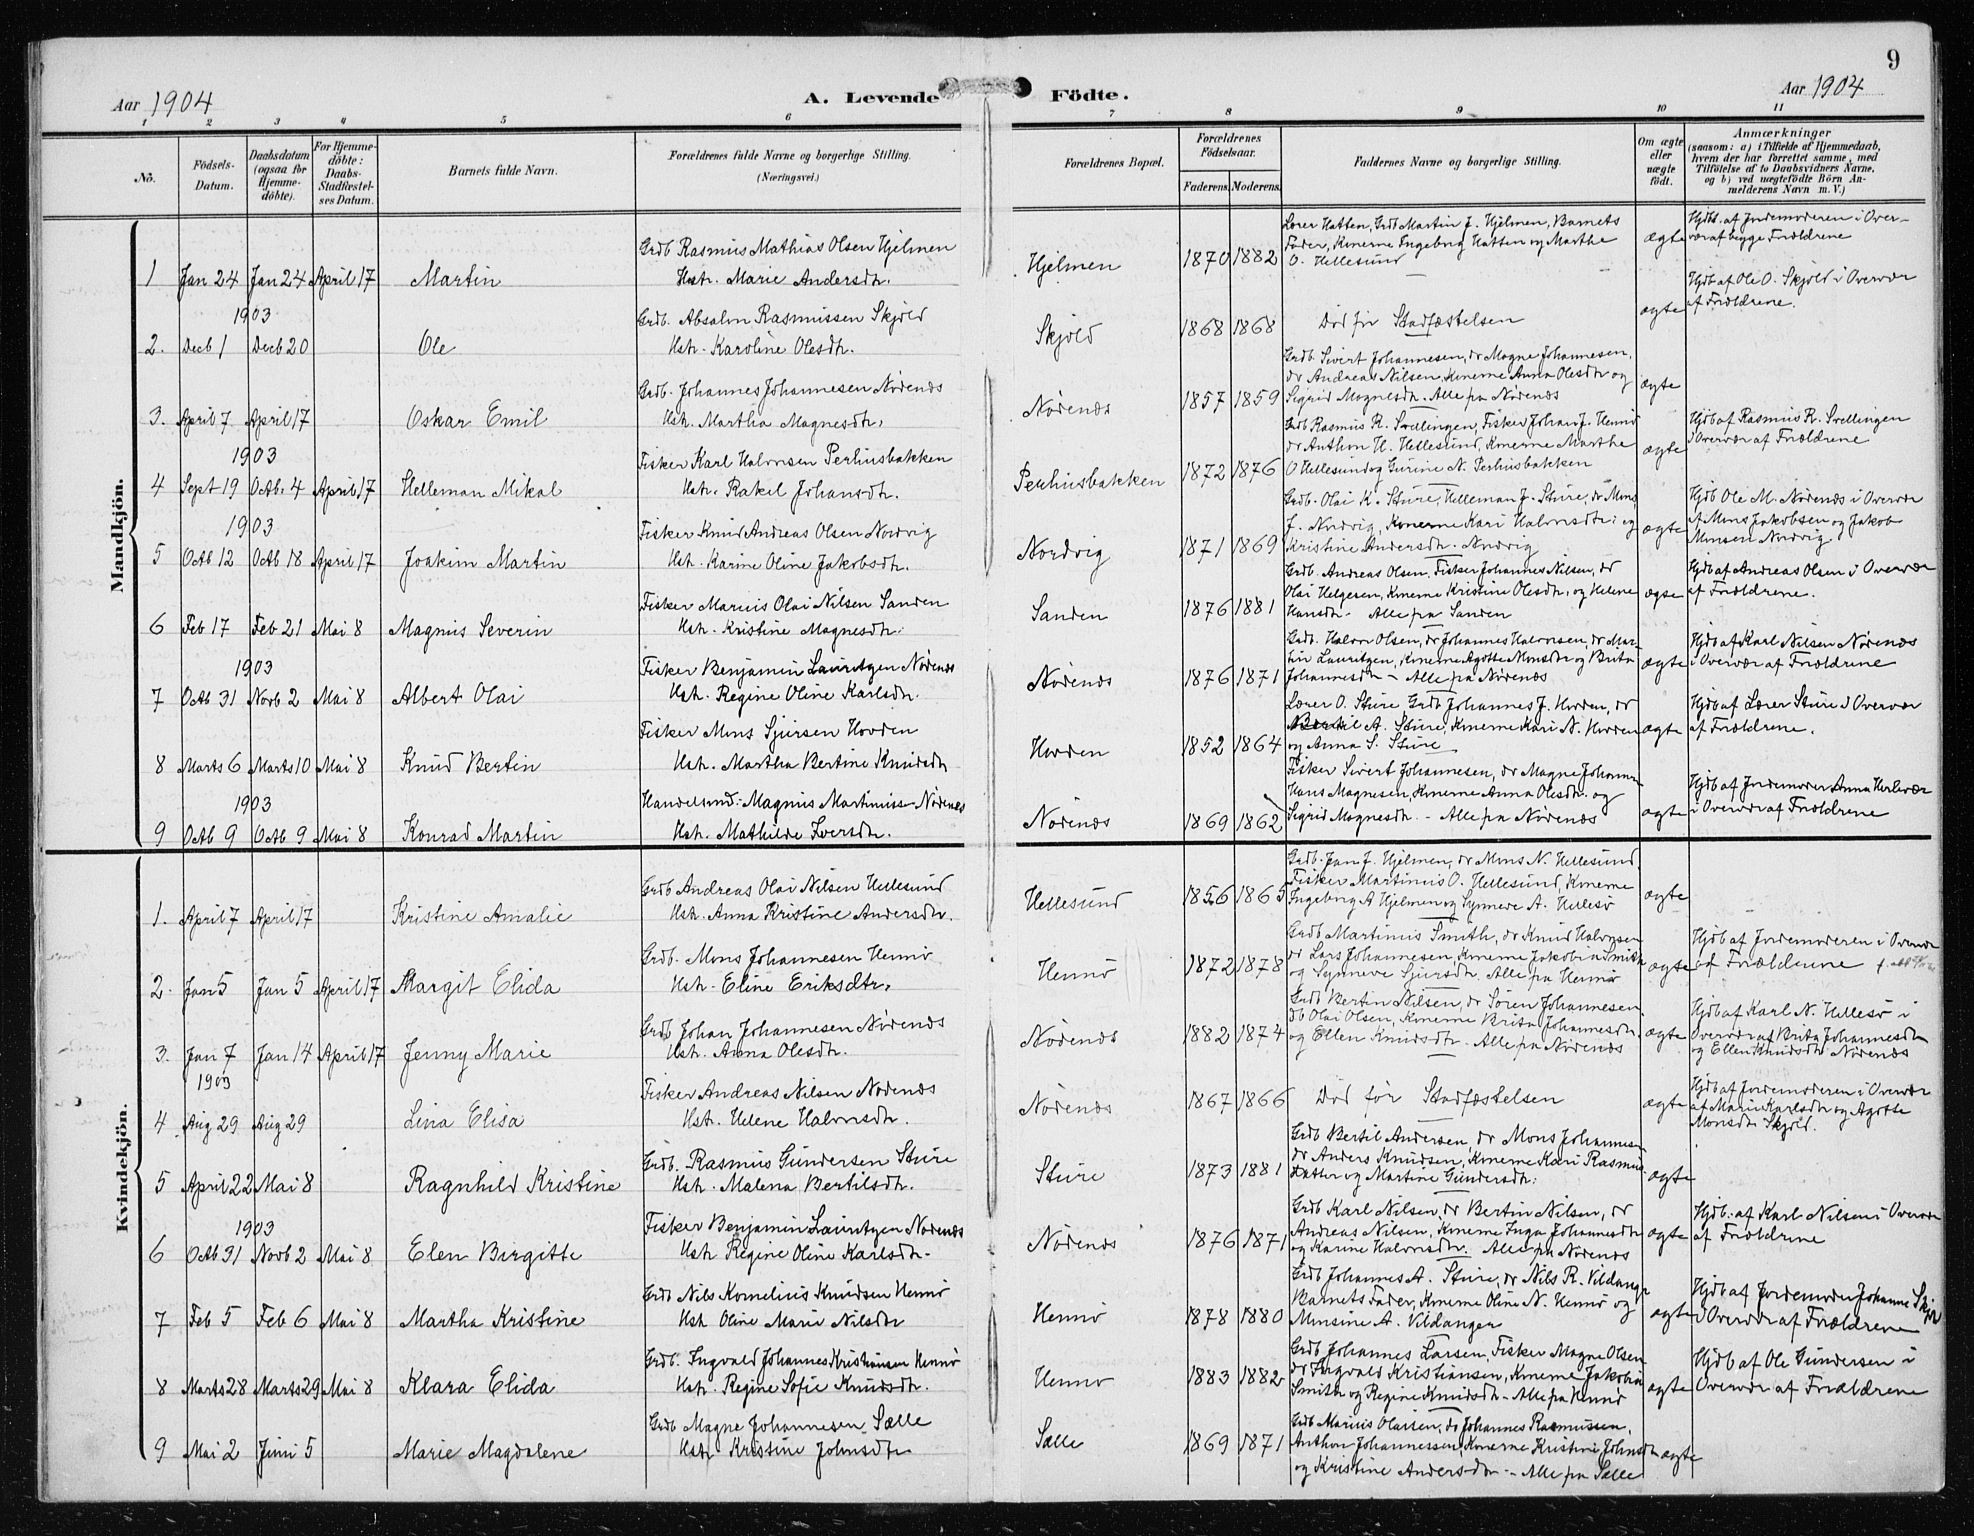 9
Aar 1904
A. Levende Födte.
Aar 1904
1 2 3 4 5 6 7 8 9 10 11
No.
Födsels-Datum.
Daabsdatum (ogsaa for Hjemme-döbte).
For Hjemme-döbte: Daabs-Stadfæstel-ses Datum.
Barnets fulde Navn.
Forældrenes fulde Navne og borgerlige Stilling.
(Næringsvei.)
Forældrenes Bopæl.
Forældrenes Födselsaar.
Faderens. Moderens.
Faddernes Navne og borgerlige Stilling.
Om ægte eller uægte födt.
Anmærkninger
(saasom: a) i Tilfælde af Hjemmedaab,
hvem der har forrettet samme, med
Tilföielse af to Daabsvidners Navne,
og b) ved uægtefödte Börn An-
melderens Navn m. V.)
Mandkjön.
1 Jan 24 Jan 24 April 17 Martin
Grdb Rasmus Mathias Olsen Hjelmen
Hstr. Marie Andersdtr.
Hjelmen 1870 1882
Lærer Hatten, Grdb Martin J. Hjelmen, Barnets
Fader, Konerne Ingeborg Hatten og Marthe
O. Hellesund
ægte
Hjdbt. af Jordemoderen i Over-
vær af begge Forældrene
1903
2. Decb 1 Decb 20 Ole
Grdb. Absalon Rasmussen Skjold
Hstr. Karoline Olesdtr.
Skjold 1868 1868
Död för Stadfæstelsen
ægte
Hjdb af Ole O. Skjold i Overvær
af Forældrene.
3. April 7 April 17 Oskar Emil
Grdb. Johannes Johannesen Nörenæs
Hstr. Martha Magnesdtr.
Nörenæs 1857 1859
Grdb. Sivert Johannesen, dr Magne Johannesen,
dr Andreas Nilsen, Konerne Anna Olesdtr og
Sigrid Magnesdtr. Alle fra Nörenæs
ægte
1903
4 Sept 19 Octb. 4 April 17 Helleman Mikal
Fisker Karl Halvorsen Perhusbakken
Hstr. Rakel Johansdtr.
Perhusbakken 1872 1876
Grdb Rasmus R. Svellingen, Fisker Johan J. Hennö
dr Anthon H. Hellesund, Konerne Marthe
O Hellesund og Gurine N. Perhusbakken
ægte
Hjdb af Rasmus R. Svellingen
i Overvær af Forældrene
1903
5 Octb 12 Octb 18 April 17 Joakim Martin
Fisker Knud Andreas Olsen Nordvig
Hstr. Karine Oline Jakobsdtr.
Nordvig 1871 1869
Grdb. Olai K. Sture, Helleman J. Sture, dr Mons
J. Nordvig, Konerne Kari Halvorsdtr. og
Kristine Andersdtr. Nordvig
ægte
Hjdb Ole M. Nörenæs i Overvær
af Mons Jakobsen og Jakob
Monsen Nordvig
6 Feb 17 Feb 21 Mai 8 Magnus Severin
Fisker Marius Olai Nilsen Sanden
Hstr. Kristine Magnesdtr.
Sanden 1876 1881
Grdb. Andreas Olsen, Fisker Johannes Nilsen, dr
Olai Helgesen, Konerne Kristine Olesdtr. og Helene
Hansdtr - Alle fra Sanden
ægte
Hjdb af Andreas Olsen i Overvær
af Forældrene.
1903
7 Octb 31 Novb 2 Mai 8 Albert Olai
Fisker Benjamin Lauritzen Nörenæs
Hstr. Regine Oline Karlsdtr.
Nörenæs 1876 1871
Grdb. Halvor Olsen, dr Johannes Halvorsen, dr Mar-
tin Lauritzen, Konerne Agotte Monsdtr og Brita
Johannesdtr - Alle fra Nörenæs
ægte
Hjdb af Karl Nilsen Nörenæs
i Overvær af Forældrene
8 Marts 6 Marts 10 Mai 8 Knud Bertin
Fisker Mons Sjursen Hovden
Hstr. Martha Bertine Knudsdtr
Hovden 1852 1864
Lærer O. Sture, Grdb Johannes J. Hovden, dr
Bertil A. Sture, Konerne Kari N. Hovden
og Anna S. Sture
ægte
Hjdb af Lærer Sture i Overvær
af Forældrene.
1903
9 Octb 9 Octb 9 Mai 8 Konrad Martin
Handelsmd. Magnus Martinuss. Nörenæs
Hstr. Mathilde Iversdtr.
Nörenæs 1869 1862
Fisker Sivert Johannesen, dr Magne Johannes.
Hans Magnesen, Konerne Anna Olesdtr. og
Sigrid Magnesdtr. - Alle fra Nörenæs
ægte
Hjdb af Jordemoder Anna Herlevær
i Overvær af Forældrene
Kvindekjön.
1. April 7 April 17 Kristine Amalie
Grdb Andreas Olai Nilsen Hellesund
Hstr. Anna Kristine Andersdtr.
Hellesund 1856 1865
Grdb. Jan J. Hjelmen, dr Mons N. Hellesund,
Fisker Martinus O. Hellesund, Konerne
Ingeborg A Hjelmen og Synneve A. Hellesö
ægte
2. Jan 5 Jan 5 April 17 Margit Elida
Grdb. Mons Johannesen Hennö
Hstr. Eline Eriksdtr.
Hennö 1872 1878
Grdb Martinus Smith, dr Knud Halvorsen
dr Lars Johannesen, Konerne Jakobina Smith
og Synneve Sjursdtr. Alle fra Hennö
ægte
Hjdb af Jordemoderen i Overvær
af Forældrene
3. Jan 7 Jan 14 April 17 Jenny Marie
Grdb Johan Johannesen Nörenæs
Hstr. Anna Olesdtr.
Nörenæs 1882 1874
Grdb Bertin Nilsen, dr Sören Johannesen
db Olai Olsen, Konerne Brita Johannesdtr.
og Ellen Knudsdtr. Alle fra Nörenæs
ægte
Hjdb af Karl N. Hellesö i
Overvær af Brita Johannesdtr
og Ellen Knudsdtr Nörenæs
1903
4 Aug 29 Aug 29 Lina Elisa
Fisker Andreas Nilsen Nörenæs
Hstr. Helene Halvorsdtr.
Nörenæs 1867 1866
Död för Stadfæstelsen
ægte
Hjdb af Jordemoderen i Overvær
af Marie Karlsdtr og Agotte
Monsdtr Skjold.
5 April 22 Mai 8 Ragnhild Kristine
Grdb. Rasmus Gundersen Sture
Hstr. Malena Bertilsdtr.
Sture 1873 1881
Grdb Bertil Andersen, dr Mons Johannes.
dr Anders Knudsen, Konerne Kari Rasmus
datter og Martine Gundersdtr.
ægte
1903
6 Octb 31 Novb 2 Mai 8 Elen Birgitte
Fisker Benjamin Lauritzen Nörenæs
Hstr Regine Oline Karlsdtr.
Nörenæs 1876 1871
Grdb Karl Nilsen, dr Bertin Nilsen, dr
Andreas Nilsen, Konerne Inga Johannesdtr
og Karine Halvorsdtr. Alle fra Nörenæs
ægte
Hjdb. af Karl Nilsen i Overvær
af Forældrene
7 Feb 5 Feb 6 Mai 8 Martha Kristine
Grdb Nils Kornelius Knudsen Hennö
Hstr Oline Marie Nilsdtr
Hennö 1878 1880
Grdb Johannes A. Sture, dr Nils R. Vildanger
Barnets Fader, Konerne Oline N. Hennö og
Monsine A. Vildanger
ægte
Hjdb af Jordemoder Johanne Skjold
i Overvær af Forældrene
8 Marts 28 Marts 29 Mai 8 Klara Elida
Grdb. Ingvald Johannes Kristiansen Hennö
Hstr. Regine Sofie Knudsdtr.
Hennö 1883 1882
Grdb Johannes Larsen, Fisker Magne Olsen
dr Ingvald Kristiansen, Konerne Jakobin
Smith og Regine Knudsdtr - Alle fra Hennö
ægte
Hjdb af Ole Gundersen i
Overvær af Forældrene
9 Mai 2 Juni 5 Marie Magdalene
Grdb Magne Johannesen Sælle
Hstr Kristine Johnsdtr
Sælle 1869 1871
Grdb Marius Olaisen, do Johannes Rasmussen,
Anthon Johannessen, Konerne Kristine Johnsdtr
og Kristine Andersdtr - Alle fra Sælle
ægte